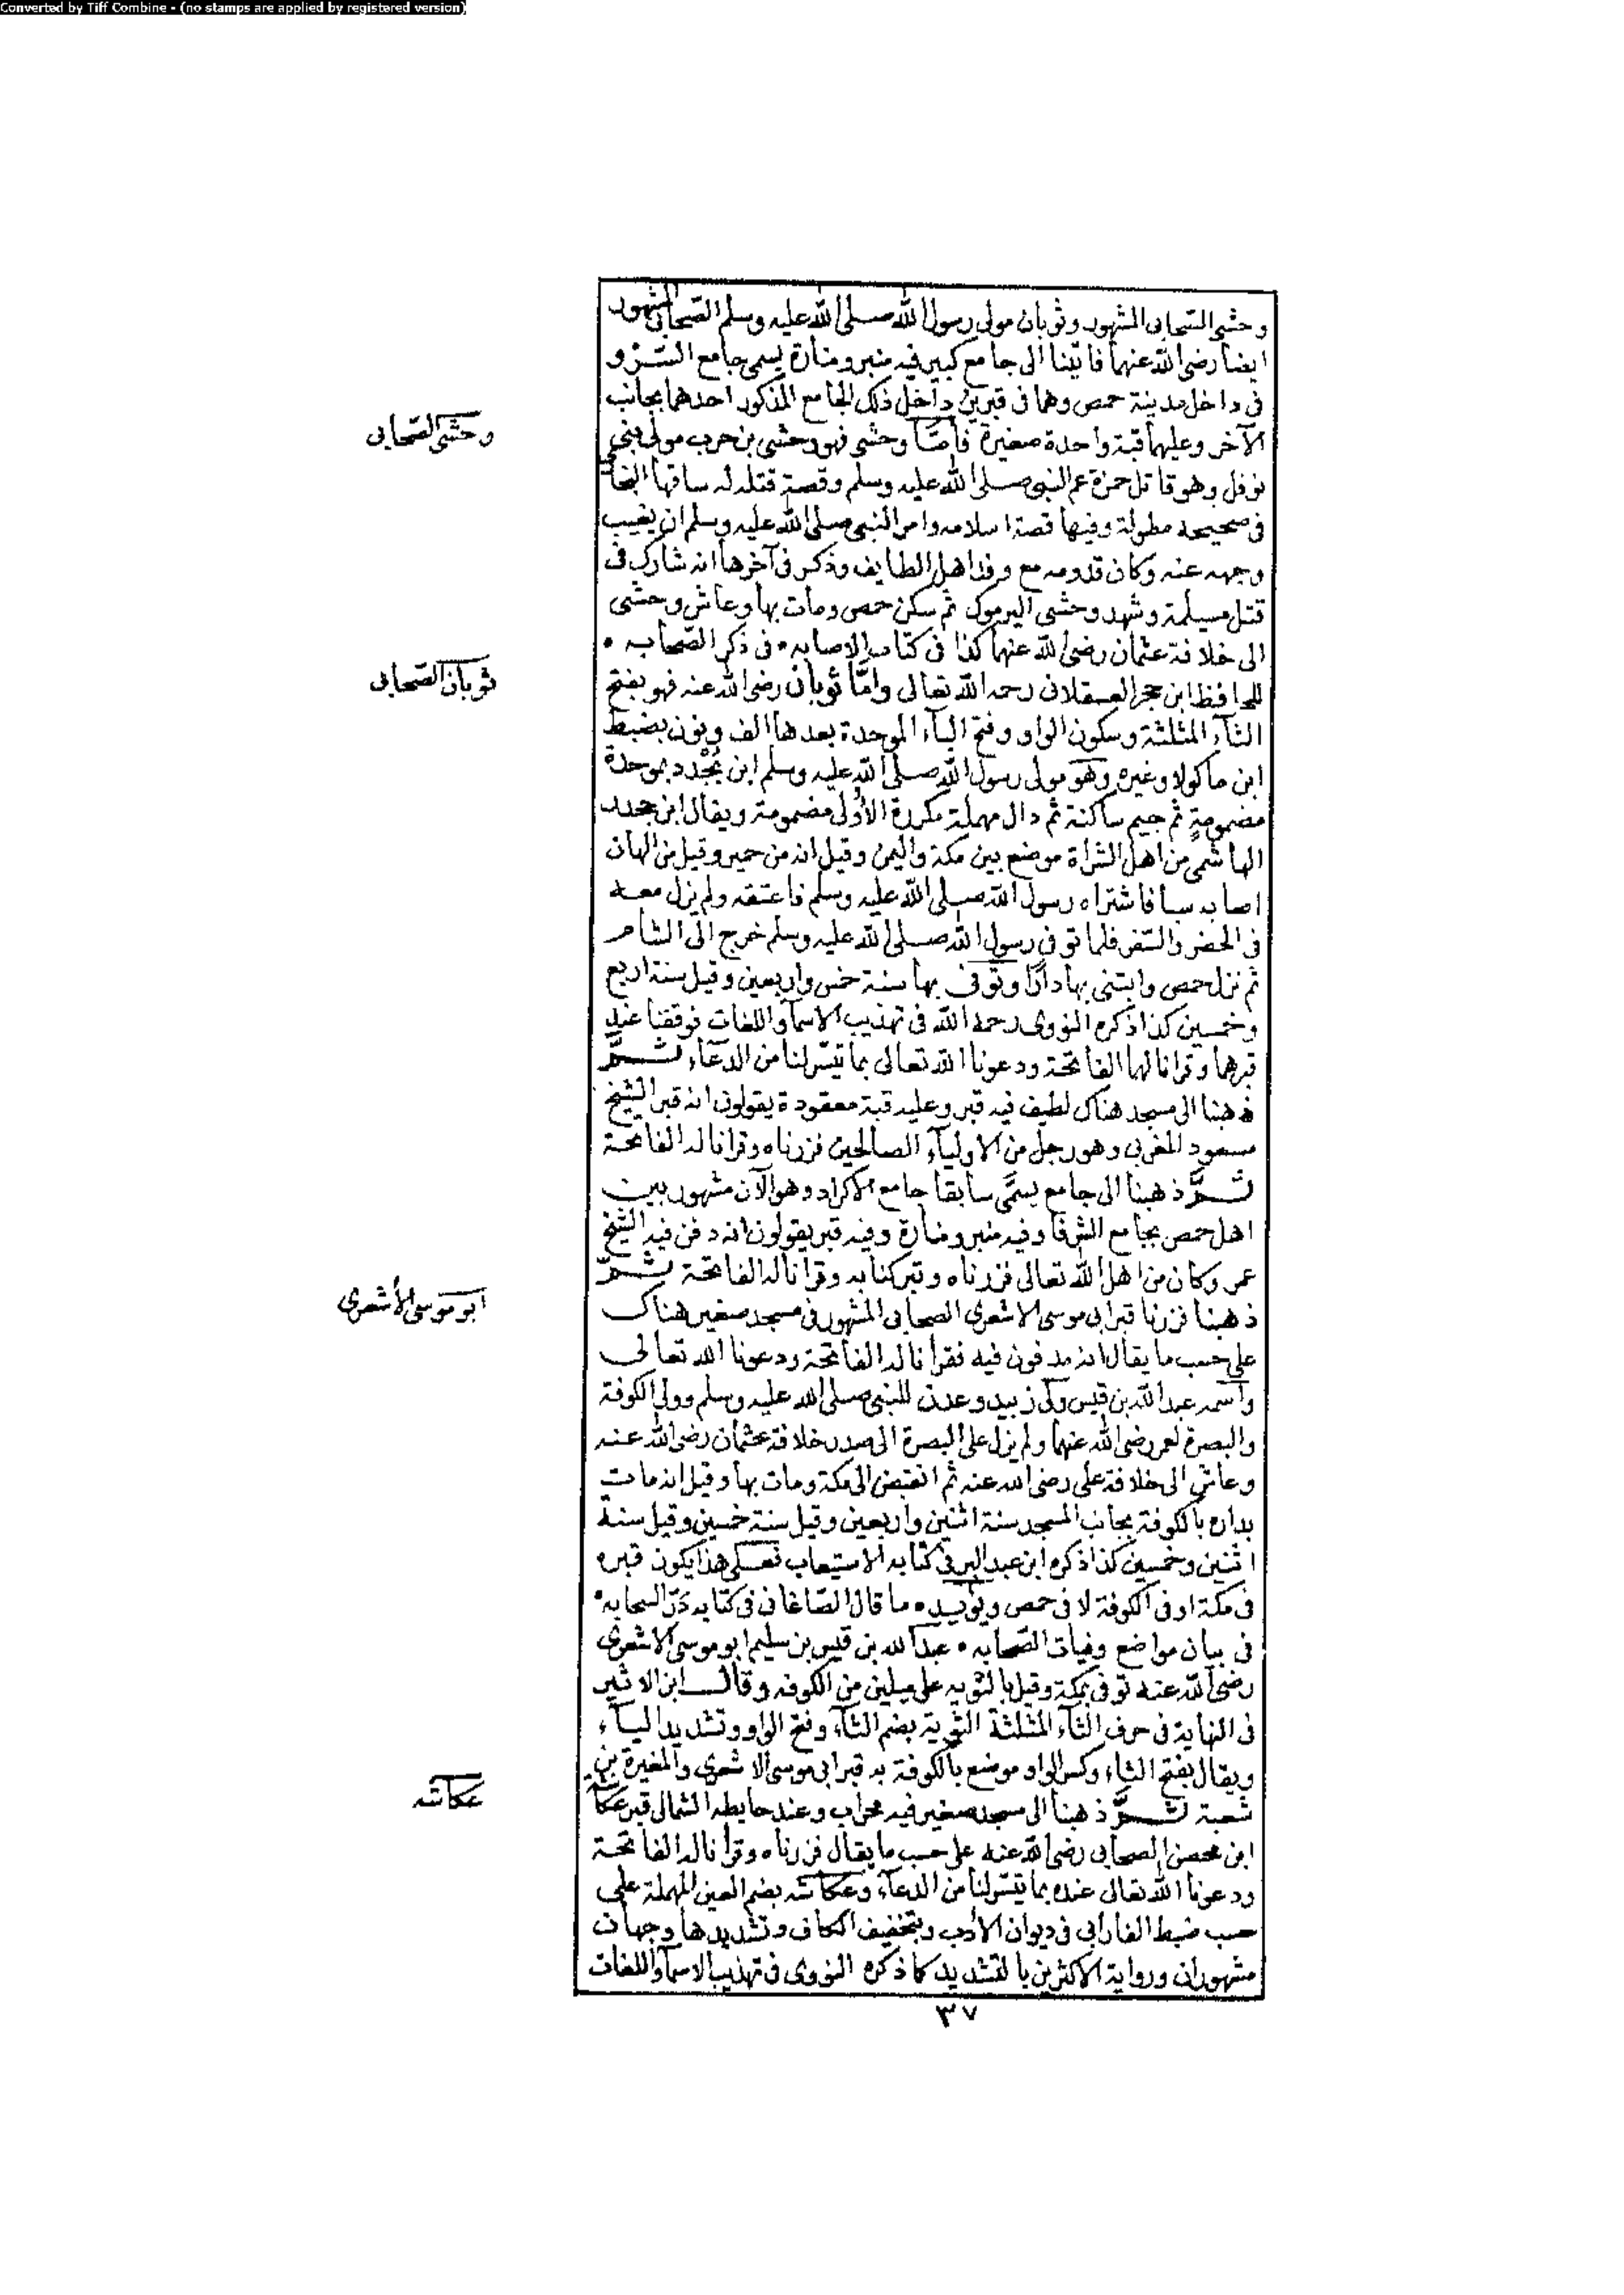 Converted by Tiff Combine - (no stamps are applied by registered version)
وحشى الصّحابى المشهور وثوبان مولى رسول الله صلى الله عليه وسلم الصّحابى المشهور
ايضا رضى الله عنهما فاتينا الى جامع كبير فيه منبر ومنارة يسمى جامع السّرو
فى داخل مدينة حمص وهما فى قبرين داخل ذلك الجامع المذكور احدهما بجانب
الآخر وعليهما قبّة واحدة صغيرة فأمّا وحشى فهو وحشى بن حرب مولى بنى
نوفل وهو قاتل حمزة عم النبى صلى الله عليه وسلم وقصة قتله له ساقها البخارى
فى صحيحه مطولة وفيها قصة اسلامه وامر النبى صلى الله عليه وسلم ان يغيب
وجهه عنه وكان قدومه مع وفد اهل الطايف وذكر فى آخرها انه شارك فى
قتل مسيلمة وشهد وحشى اليرموك ثم سكن حمص ومات بها وعاش وحشى
الى خلافة عثمان رضى الله عنهما كذا فى كتاب الاصابه فى ذكر الصّحابه
للحافظ ابن حجر العسقلانى رحمه الله تعالى وامّا ثوبان رضى الله عنه فهو بفتح
الثآء المثلثة وسكون الواو وفتح البآء الموحدة بعدها الف ونون بضبط
ابن ماكولا وغيره وهو مولى رسول الله صلى الله عليه وسلم ابن بُجْدد بموحدة
مضمومةٍ ثم جيم ساكنة ثم دال مهملة مكررة الأولى مضمومة ويقال ابن جحدر
الهاشمى من اهل الشراة موضع بين مكة واليمن وقيل انه من حمير وقيل من الهان
اصابه سبا فاشتراه رسول الله صلى الله عليه وسلم فاعتقه ولم يزل معه
فى الحضر والسّفر فلما توفى رسول الله صلى الله عليه وسلم خرج الى الشام
ثم نزل حمص وابتنى بها دارًا وتوفى بها سنة خمس واربعين وقيل سنة اربع
وخمسين كذا ذكره النووى رحمه الله فى تهذيب الاسمآ واللغات فوقفنا عند
قبرهما وقرانا لهما الفاتحة ودعونا الله تعالى بما تيسّر لنا من الدعآء ثمَّ
ذهبنا الى مسجد هناك لطيف فيه قبر وعليه قبة معقودة يقولون انه قبر الشيخ
مسعود المغربى وهو رجل من الاوليآء الصالحين فزرناه وقرانا له الفاتحة
ثمَّ ذهبنا الى جامع يسمّى سابقا جامع الاكراد وهو الآن مشهور بين
اهل حمص بجامع الشرفا وفيه منبر ومنارة وفيه قبر يقولون انه دفن فيه الشيخ
عمر وكان من اهل الله تعالى فزرناه وتبركنا به وقرانا له الفاتحة ثمّ
ذهبنا فزرنا قبر ابى موسى الاشعرى الصحابى المشهور فى مسجد صغير هناك
على حسب ما يقال انه مدفون فيه فقرانا له الفاتحة ودعونا الله تعالى
وآسمه عبد الله بن قيس ولى زبيد وعدن للنبى صلى الله عليه وسلم وولى الكوفة
والبصرة لعمر رضى الله عنهما ولم يزل على البصرة الى صدر خلافة عثمان رضى الله عنه
وعاش الى خلافة على رضى الله عنه ثم انقبض الى مكة ومات بها وقيل انه مات
بداره بالكوفة بجانب المسجد سنة اثنين واربعين وقيل سنة خمسين وقيل سنة
اثنين وخمسين كذا ذكره ابن عبد البر فى كتابه الاستيعاب فعلى هذا يكون قبره
فى مكة او فى الكوفة لا فى حمص ويؤيده ما قال الصّاغانى فى كتابه درّ السحابه
فى بيان مواضع وفيات الصّحابه عبد الله بن قيس بن سليم ابو موسى الاشعرى
رضى الله عنه توفى بمكة وقيل بالثويه على ميلين من الكوفه وقال ابن الاثير
فى النهاية فى حرف الثآء المثلثة الثوية بضم الثآء وفتح الواو وتشديد اليآء
ويقال بفتح الثاء وكسر الواو موضع بالكوفة به قبر ابى موسى الاشعرى والمغيرة بن
شعبة ثمَّ ذهبنا الى مسجد صغير فيه محراب وعند حايطه الشمالى قبر عكاشة
ابن محصن الصحابى رضى الله عنه على حسب ما يقال فزرناه وقرانا له الفاتحة
ودعونا الله تعالى عنده بما تيسّر لنا من الدعآء وعكاشه بضم العين المهملة على
حسب ضبط الفارابى فى ديوان الأدب وبتخفيف الكاف وتشديدها وجهان
مشهوران ورواية الاكثرين بالتشديد كما ذكره النووى فى تهذيب الاسمآ واللغات
وحشى الصّحابى
ثوبان الصّحابى
ابو موسى الأشعرى
عكاشه
٣٧